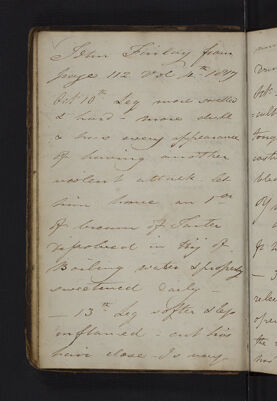 John Finlay from
page 112 Vol 4th 1817
Oct 10th Leg more swelled
& hard - more dull
& has every appearance
of having another
violent attack let
him have an
of cream of Tartar
dissolved in of
Boiling water & properly
sweetened daily -
- 13th Leg softer & less
inflamed - cut his
hair close - Is very